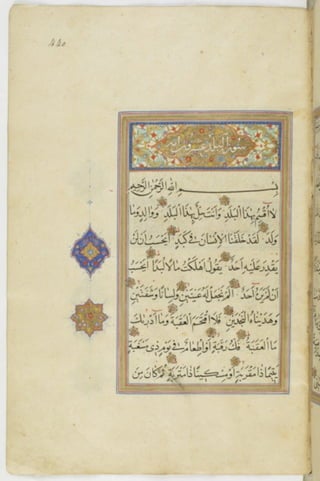 440
سورة البلد عشرون آية
بسم الله الرحمن الرحيم
لا أقسم بهذا البلد وأنت حل بهذا البلد ووالد وما
ولد لقد خلقنا الإنسان في كبد أيحسب أن لن
يقدر عليه أحد يقول أهلكت مالا لبدا أيحسب
أن لم يره أحد ألم نجعل له عينين ولسانا وشفتين
وهديناه النجدين فلا اقتحم العقبة وما أدريك
ما العقبة فك رقبة أو إطعام في يوم ذي مسغبة
يتيما ذا مقربة أو مسكينا ذا متربة ثم كان من